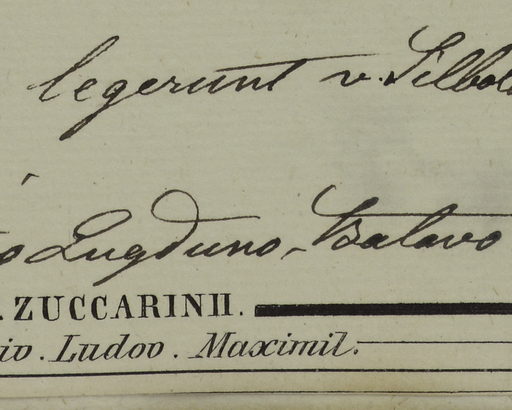 legerunt v. Silbol
Lugduno-Batavo
. ZUCCARINII.
iv. Ludov. Maximil.